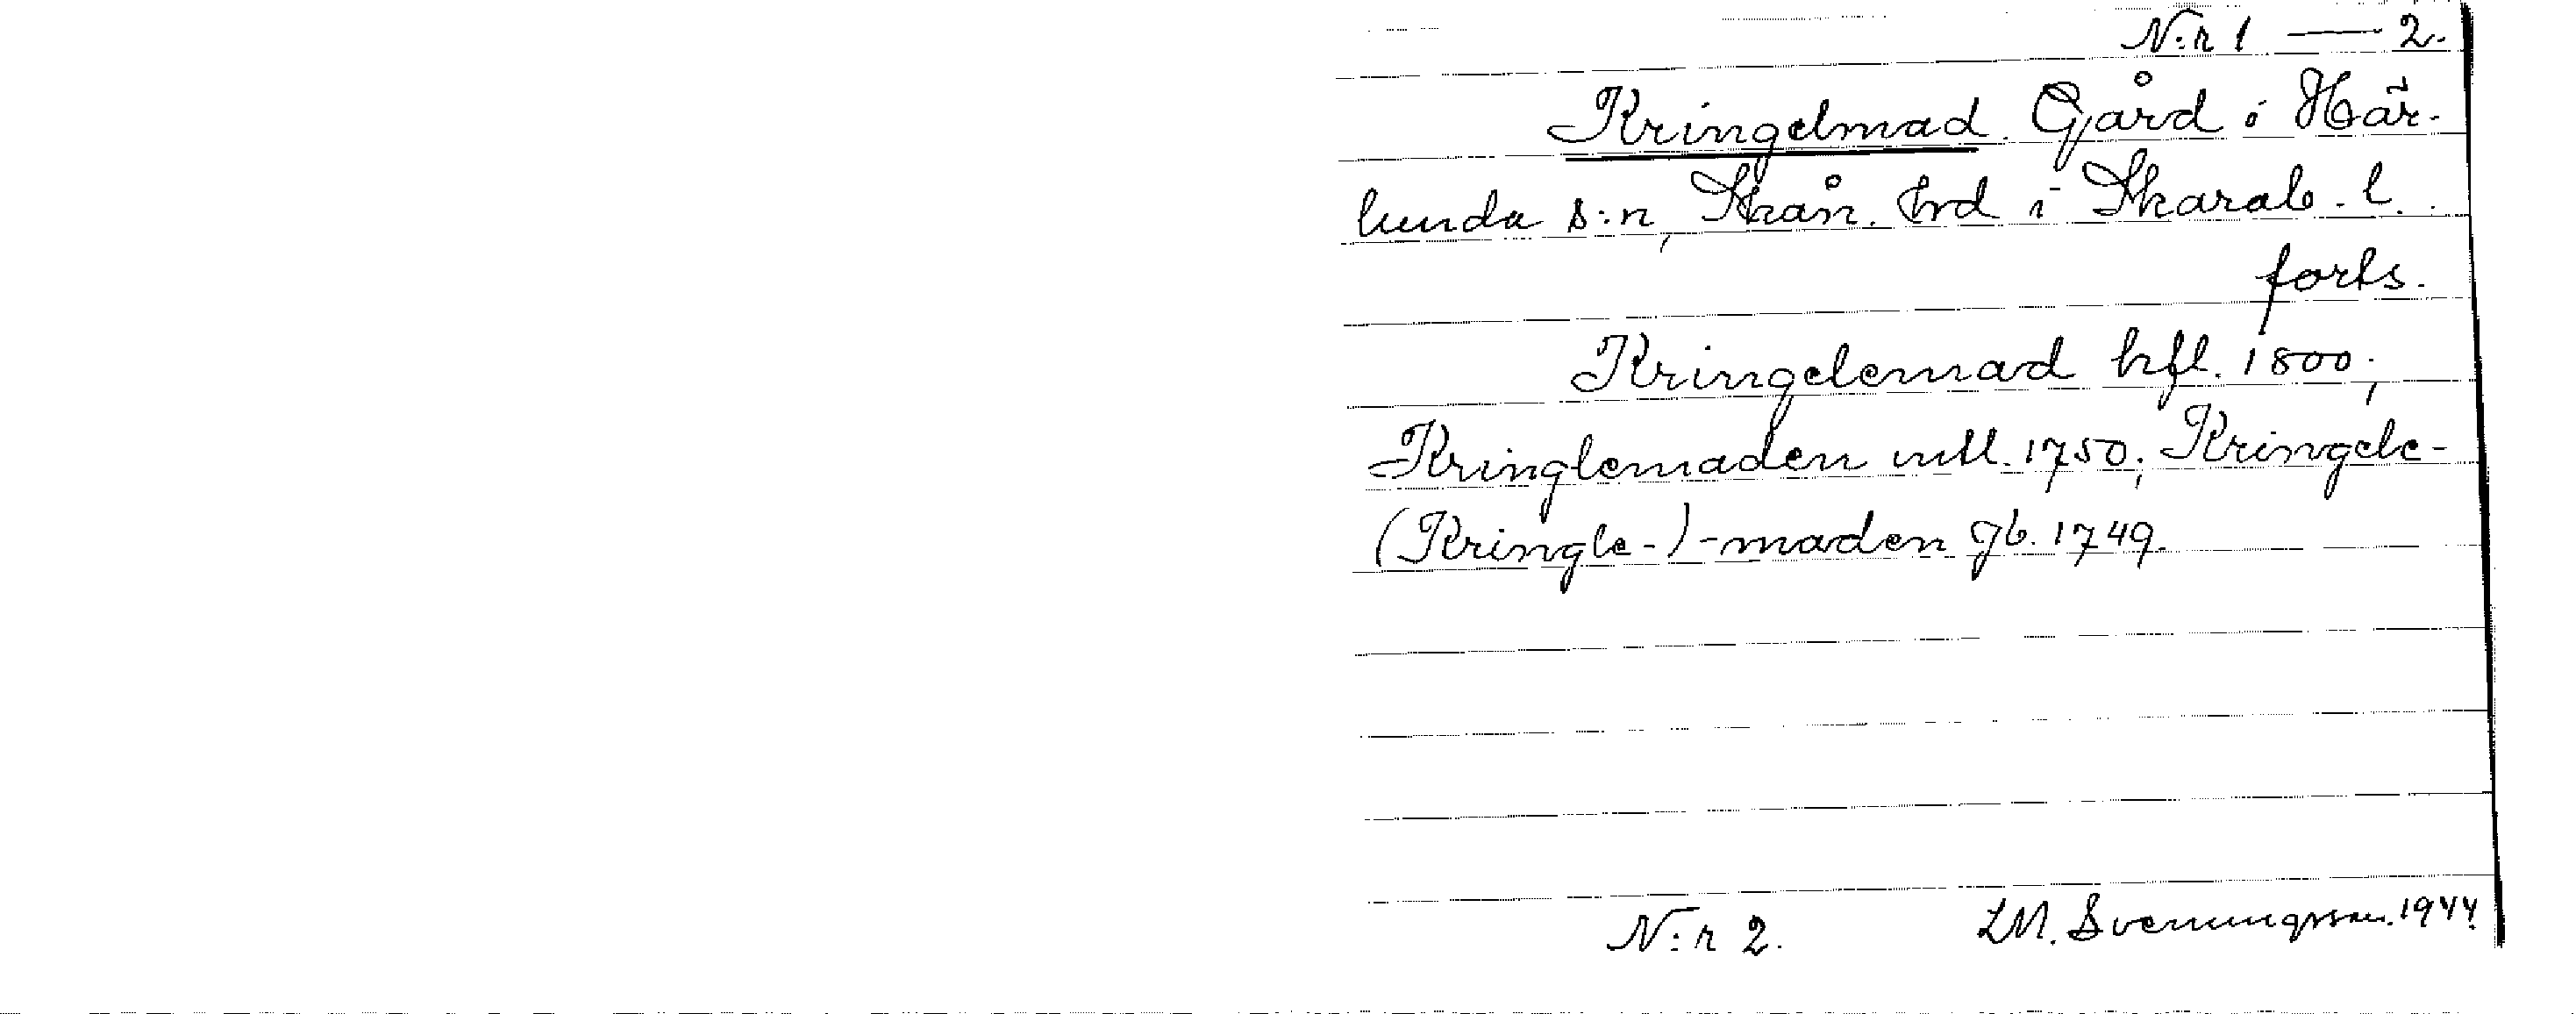 N:r 1 — 2.
Kringelmad. Gård i Här-
lunda s:n, Skån. hd i Skarab. l.
forts.
Kringelemad hfl. 1800;
Kringlemaden mtl. 1750; Kringele-
(Kringle-)-maden jb. 1749.
N:r 2. LM. Svenungsson. 1944.